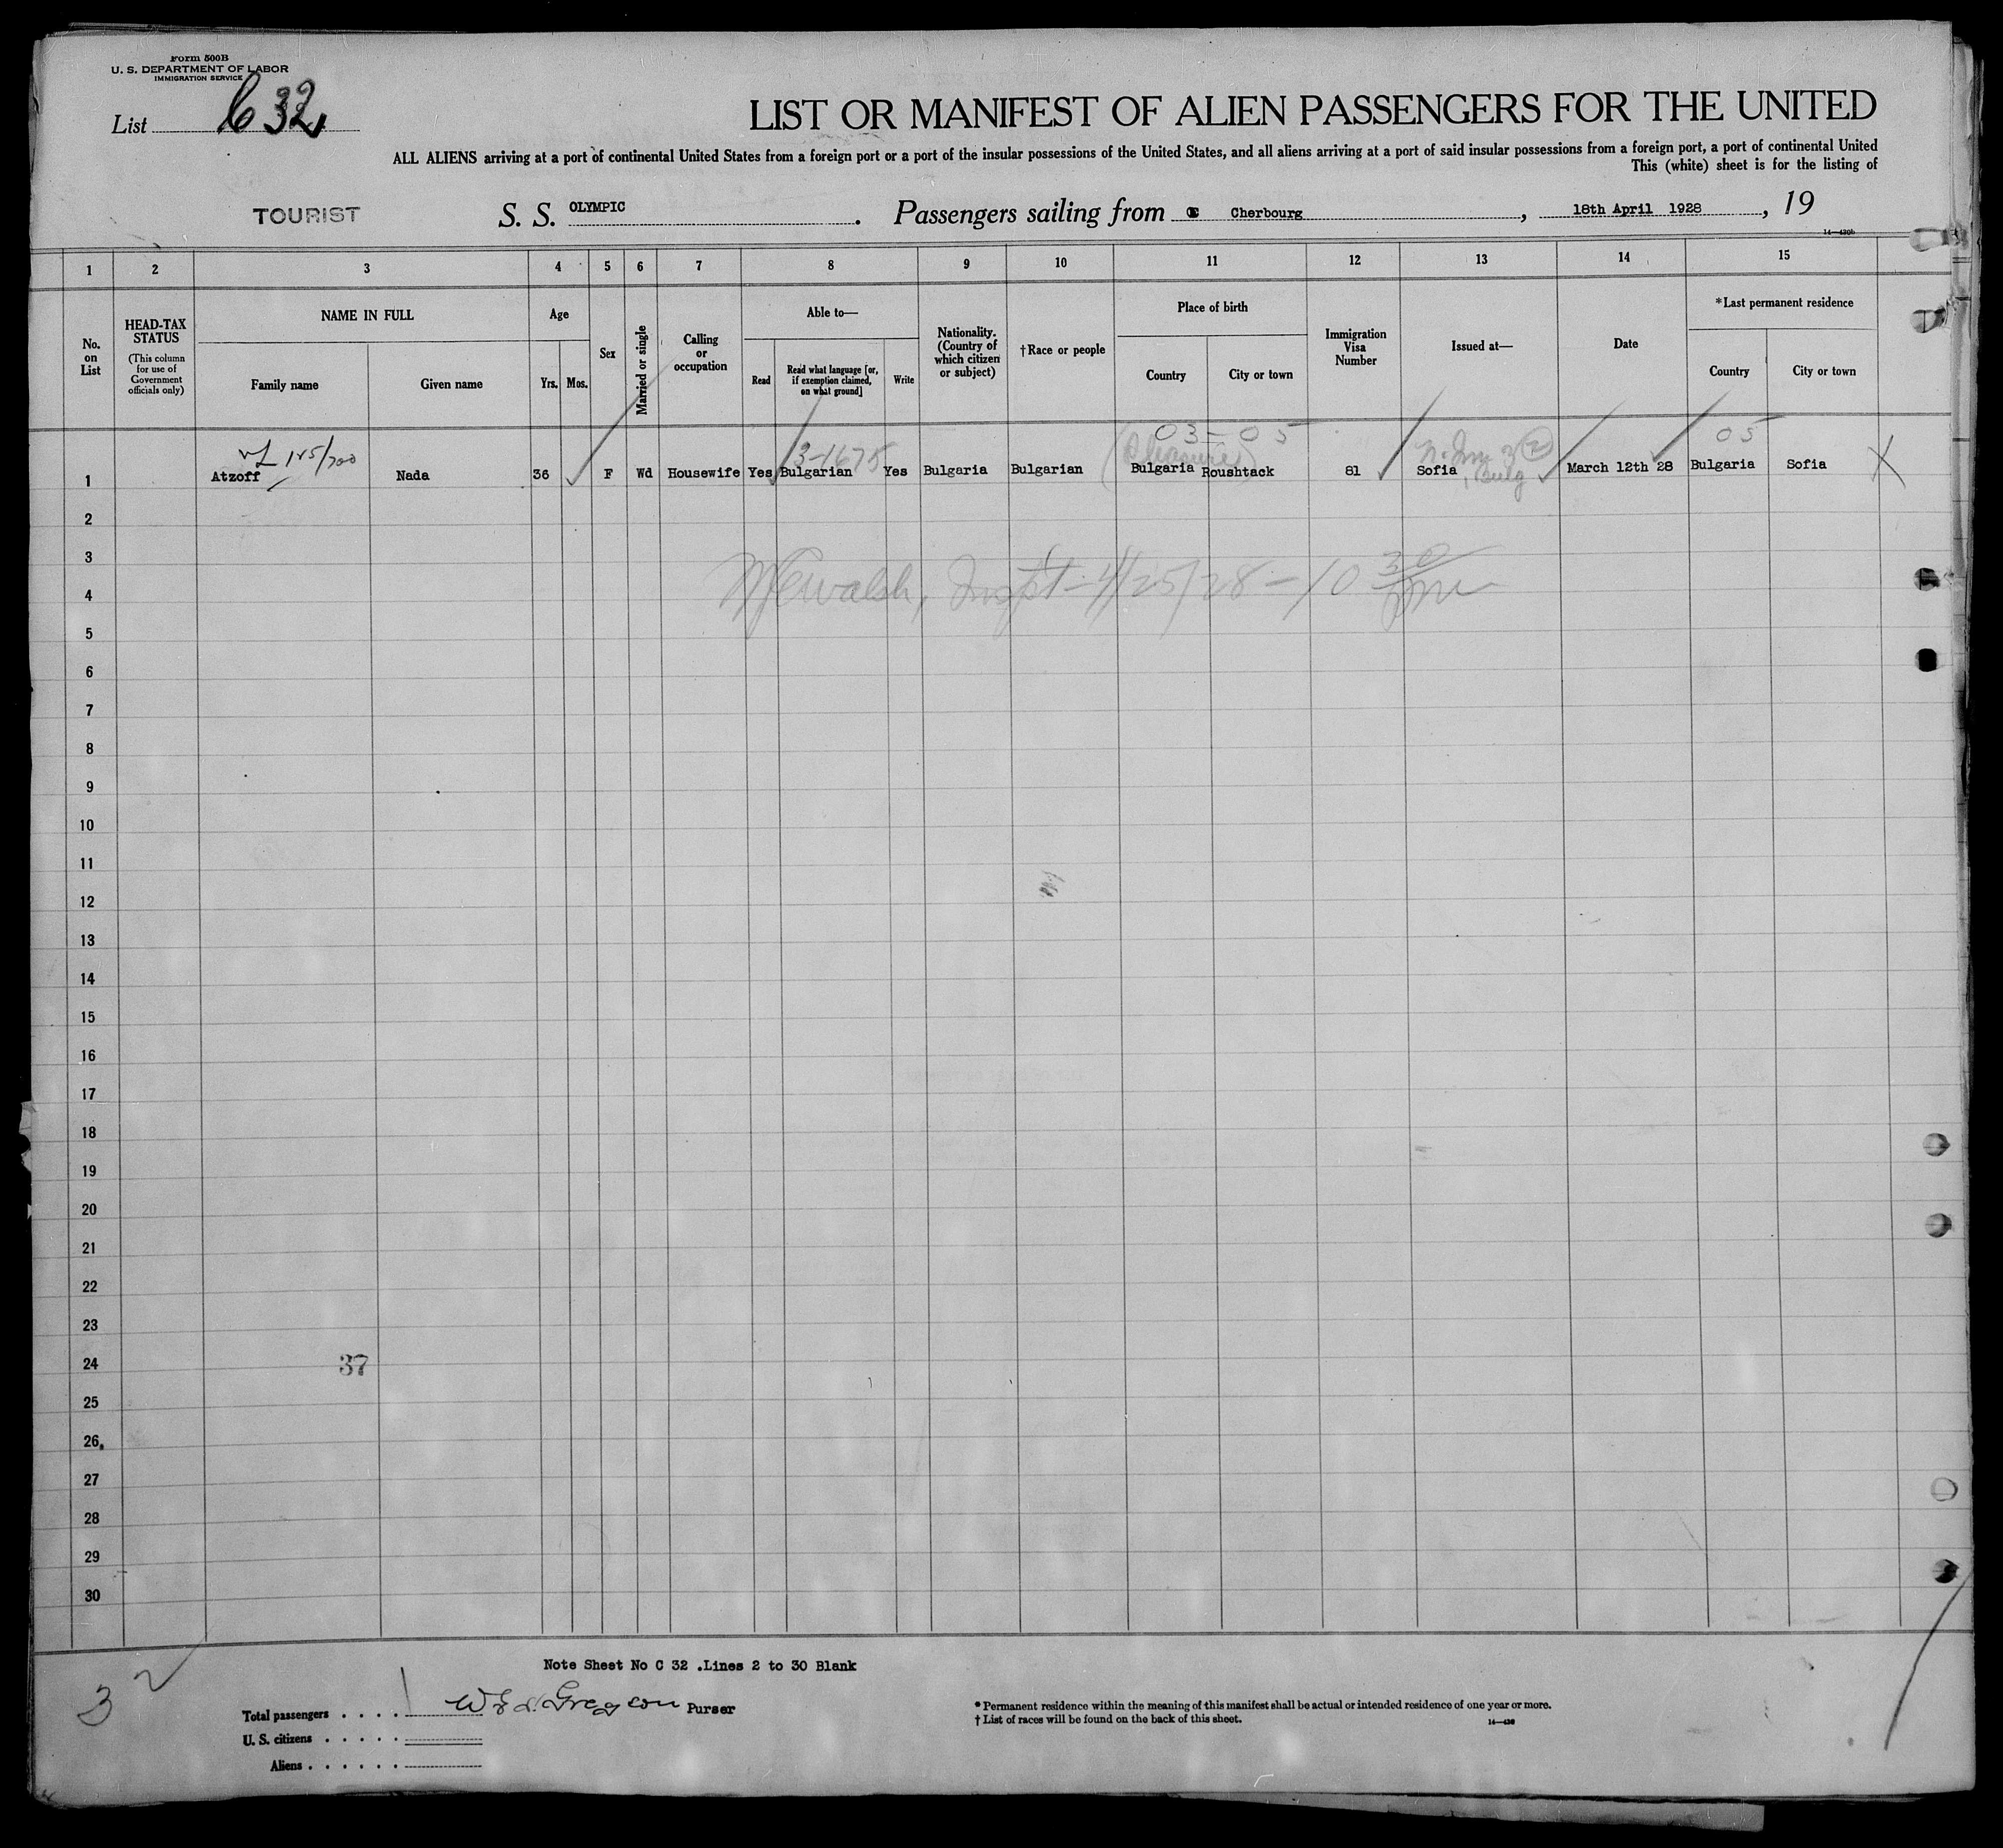 Form 500B
U. S. DEPARTMENT OF LABOR
IMMIGRATION SERVICE
List C 32
LIST OR MANIFEST OF ALIEN PASSENGERS FOR THE UNITED
ALL ALIENS arriving at a port of continental United States from a foreign port or a port of the insular possessions of the United States, and all aliens arriving at a port of said insular possessions from a foreign port, a port of continental United
This (white) sheet is for the listing of
TOURIST S. S. OLYMPIC. Passengers sailing from Cherbourg, 18th April 1928, 19
14—430b
1 2 3 4 5 6 7 8 9 10 11 12 13 14 15
No. on List
HEAD-TAX STATUS
(This column for use of Government officials only)
NAME IN FULL
Family name Given name
Age
Yrs. Mos.
Sex
Married or single
Calling or occupation
Able to—
Read
Read what language [or, if exemption claimed, on what ground]
Write
Nationality. (Country of which citizen or subject)
†Race or people
Place of birth
Country City or town
Immigration Visa Number
Issued at—
Date
*Last permanent residence
Country City or town
3-1675 03-05 05
(Pleasure)
1 Atzoff Nada 36 F Wd Housewife Yes Bulgarian Yes Bulgaria Bulgarian Bulgaria Roushtack 81 Sofia March 12th 28 Bulgaria Sofia X
Bulg
2
3
Walsh, Inspt-4/25/28-10 30
4
5
6
7
8
9
10
11
12
13
14
15
16
17
18
19
20
21
22
23
24 37
25
26
27
28
29
30
Note Sheet No C 32 .Lines 2 to 30 Blank
3
Total passengers . . . . 1 Gregson Purser
U. S. citizens . . . . .
Aliens . . . . . .
* Permanent residence within the meaning of this manifest shall be actual or intended residence of one year or more.
† List of races will be found on the back of this sheet.
14—430